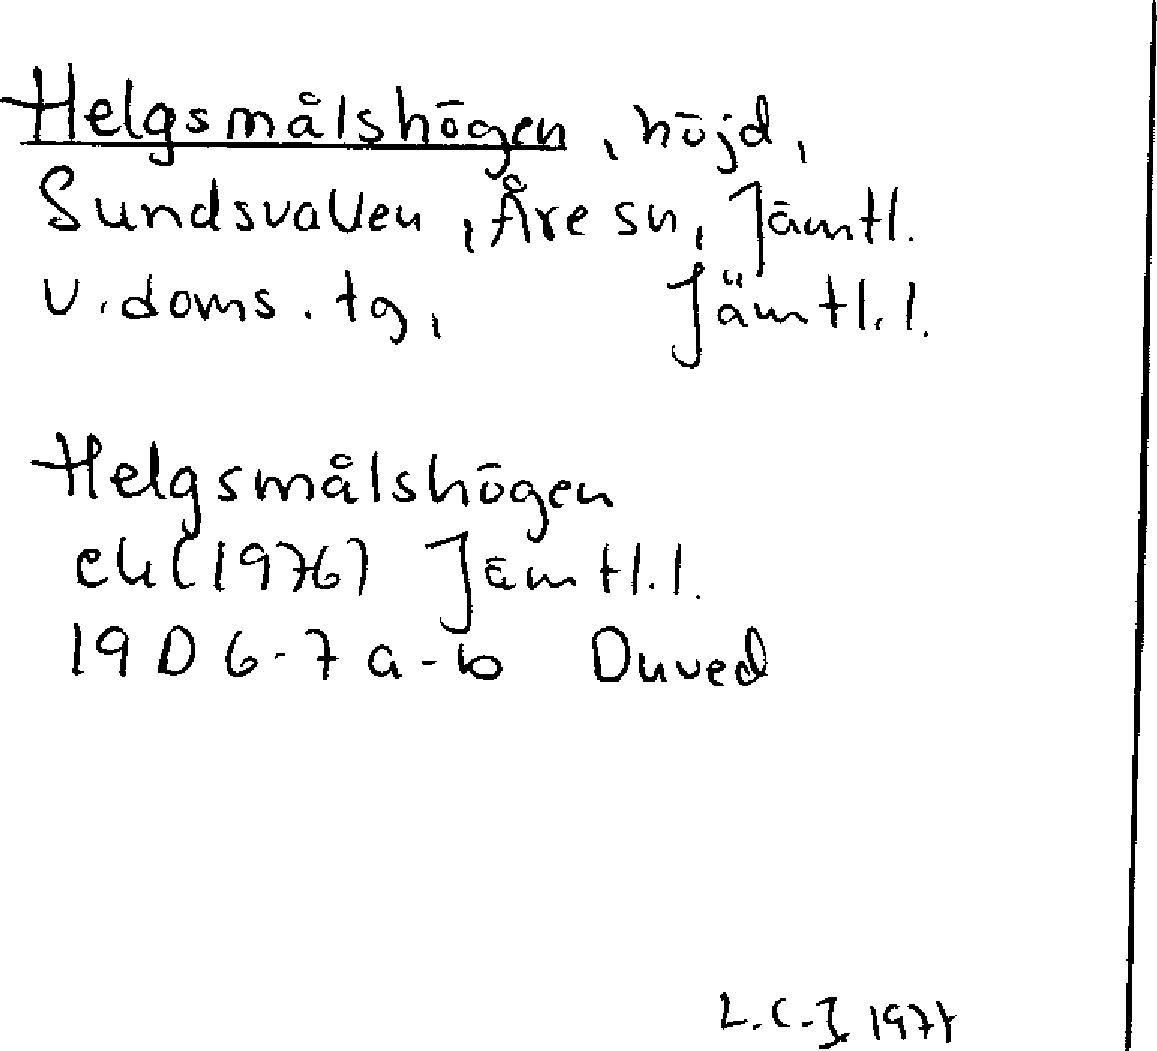 Helgsmålshögen, höjd,
Sundsvallen, Åre sn, Jämtl.
v. doms. tg, Jämtl. l.
Helgsmålshögen
ek (1976) Jämtl. l.
19 D 6-7 a-b Duved
L.C-J